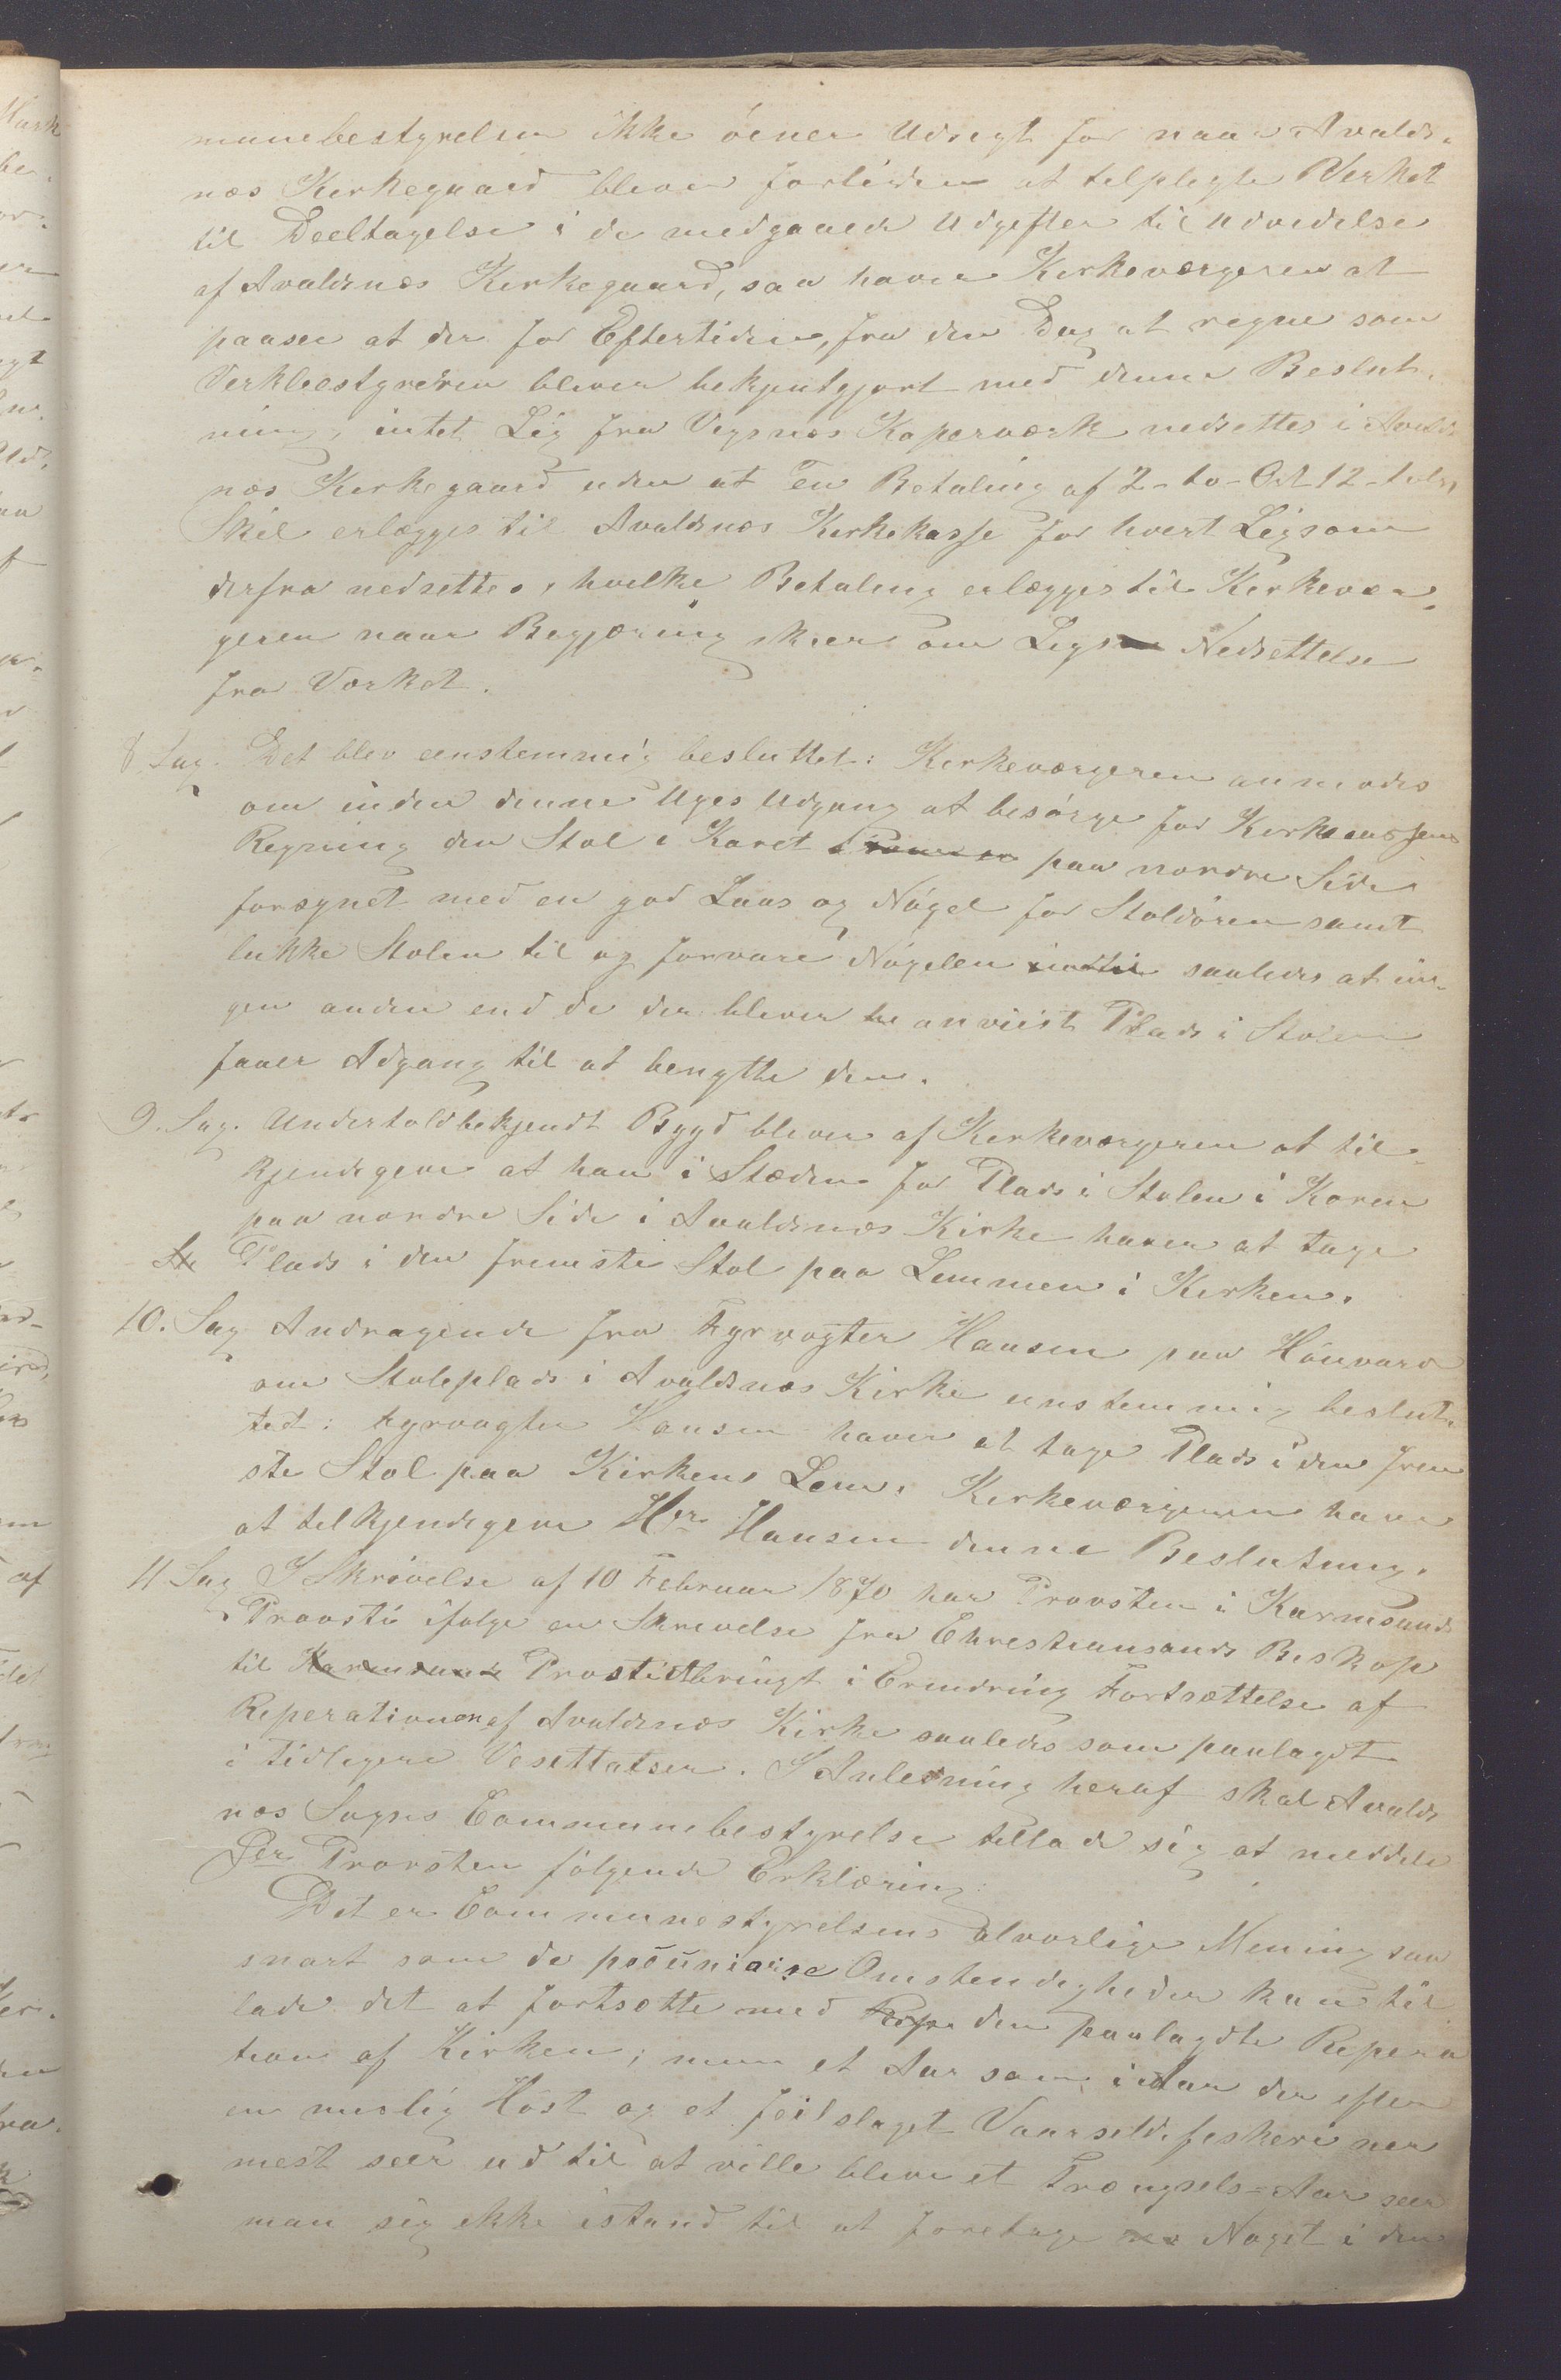 munebestyrelsen ikke öiner Udsigt for naar Avalds-
næs Kirkegaard bliver forliden at tilpligte Verket
til Deeltagelse i de medgaaede Udgifter til Udvidelse
af Avaldsnæs Kirkegaard, saa haver Kirkeværgeren at
paasee at der for Eftertiden, fra den Dag at regne som
Verkbestyreren bliver bekjentgjort med denne Beslut-
ning, intet Lig fra Vigsnæs Koperværk nedsettes i Avalds
næs Kirkegaard uden at en Betaling af 2 - to - Ort 12 - tolv
Skil erlægges til Avaldsnæs Kirkekasse for hvert Lig som
derfra nedsettes, hvilke Betaling erlægges til Kirkevær-
geren naar Begjæring skeer om Ligs Nedsettelse
fra Værket.
8 Sag. Det blev eenstemmig besluttet: Kirkeværgeren anmodes
om inden denne Uges Udgang at besörge for Kirkekassens
Regning den Stol i Koret paa nordre Side
forsynet med en god Laas og Nögel for Stoldören samt
lukke Stolen til og forvare Nögelen saaledes at in-
gen anden end de der bliver anviist Plads i Stolen
faaer Adgang til at benytte den.
9. Sag. Undertoldbetjendt Bygd bliver af Kirkeværgeren at til-
kjendegive at han i Stæden for Plads i Stolen i Koren
paa nordre Side i Avaldsnæs Kirke haver at tage
Plads i den fremste Stol paa Lemmen i Kirken.
10. Sag Andragende fra Fyrvogter Hansen paa Höievarde
om Stoleplads i Avaldsnæs Kirke enstemmig beslut-
tet: Fyrvogter Hansen haver at tage Plads i den frem
ste Stol paa Kirkens Lem. Kirkeværgeren haver
at tilkjendegive Hr Hansen denne Beslutning.
11 Sag I Skrivelse af 10 Februar 1870 har Provsten i Karmsunds
Provsti ifolge en Skrivelse fra Christiansands Biskop
til Karmsunds Prosti bringt i Erindring Fortsættelse af
Reperationen af Avaldsnæs Kirke saaledes som paalagdt
i Tidligere Vesettatser. I Anledning heraf skal Avalds
næs Sogns Communebestyrelse tillade sig at meddele
Hr Provsten fölgende Erklæring:
Det er Communestyrelsens alvorlige Mening saa
snart som de pecuniaire Omstendigheder kan til
lade det at fortsætte med den paalagdte Repera
tion af Kirken; men et Aar som i Aar der efter
en mislig Höst og et feilslaget Vaarsildfiskeri nær
mest seer ud til at ville blive et Trængsels-Aar seer
man sig ikke istand til at foretage Noget i den